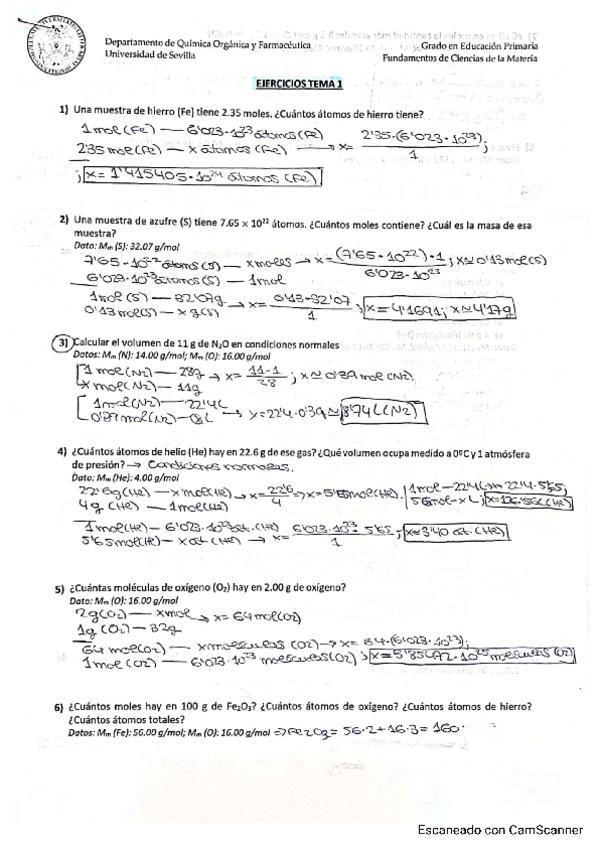 Departamento de Química Orgánica y Farmacéutica
Universidad de Sevilla
Grado en Educación Primaria
Fundamentos de Ciencias de la Materia
EJERCICIOS TEMA 1
1) Una muestra de hierro (Fe) tiene 2.35 moles. ¿Cuántos átomos de hierro tiene?
1 mol (Fe) — 6'023·10²³ átomos (Fe)
2'35 mol (Fe) — x átomos (Fe) → x = 2'35·(6'023·10²³) / 1 ;
; x = 1'415405·10²⁴ átomos (Fe)
2) Una muestra de azufre (S) tiene 7.65 × 10²² átomos. ¿Cuántos moles contiene? ¿Cuál es la masa de esa
muestra?
Dato: Mm (S): 32.07 g/mol
7'65·10²² átomos (S) — x moles → x = (7'65·10²²)·1 / 6'023·10²³ ; x ≃ 0'13 mol (S)
6'023·10²³ átomos (S) — 1 mol
1 mol (S) — 32'07g → x = 0'13·32'07 / 1 ; x = 4'1691; x ≃ 4'17g
0'13 mol (S) — x g (S)
3) Calcular el volumen de 11 g de N₂O en condiciones normales
Datos: Mm (N): 14.00 g/mol; Mm (O): 16.00 g/mol
1 mol (N₂) — 28g → x = 11·1 / 28 ; x ≃ 0'39 mol (N₂)
x mol (N₂) — 11g
1 mol (N₂) — 22'4L
0'39 mol (N₂) — → y = 22'4·0'39 ≃ 8'74 L (N₂)
4) ¿Cuántos átomos de helio (He) hay en 22.6 g de ese gas? ¿Qué volumen ocupa medido a 0ºC y 1 atmósfera
de presión? → Condiciones normales.
Dato: Mm (He): 4.00 g/mol
22'6g (He) — x mol (He) → x = 22'6 / 4 → x = 5'65 mol (He). 1 mol — 22'4L x = 22'4·5'65;
4g (He) — 1 mol (He)
1 mol (He) — 6'023·10²³ át. (He) 6'023·10²³·5'65
5'65 mol (He) — x át. (He) → x = / 1 ; x = 3'40 át. (He)
5) ¿Cuántas moléculas de oxígeno (O₂) hay en 2.00 g de oxígeno?
Dato: Mm (O): 16.00 g/mol
2g (O₂) — x mol → x = 64 mol (O₂)
1g (O₂) — 32g
64 mol (O₂) — x moléculas (O₂) → x =
1 mol (O₂) — 6'023·10²³ moléculas (O₂)
6) ¿Cuántos moles hay en 100 g de Fe₂O₃? ¿Cuántos átomos de oxígeno? ¿Cuántos átomos de hierro?
¿Cuántos átomos totales?
Datos: Mm (Fe): 56.00 g/mol; Mm (O): 16.00 g/mol ⇒ Fe₂O₃ = 56·2+16·3 = 160
Escaneado con CamScanner